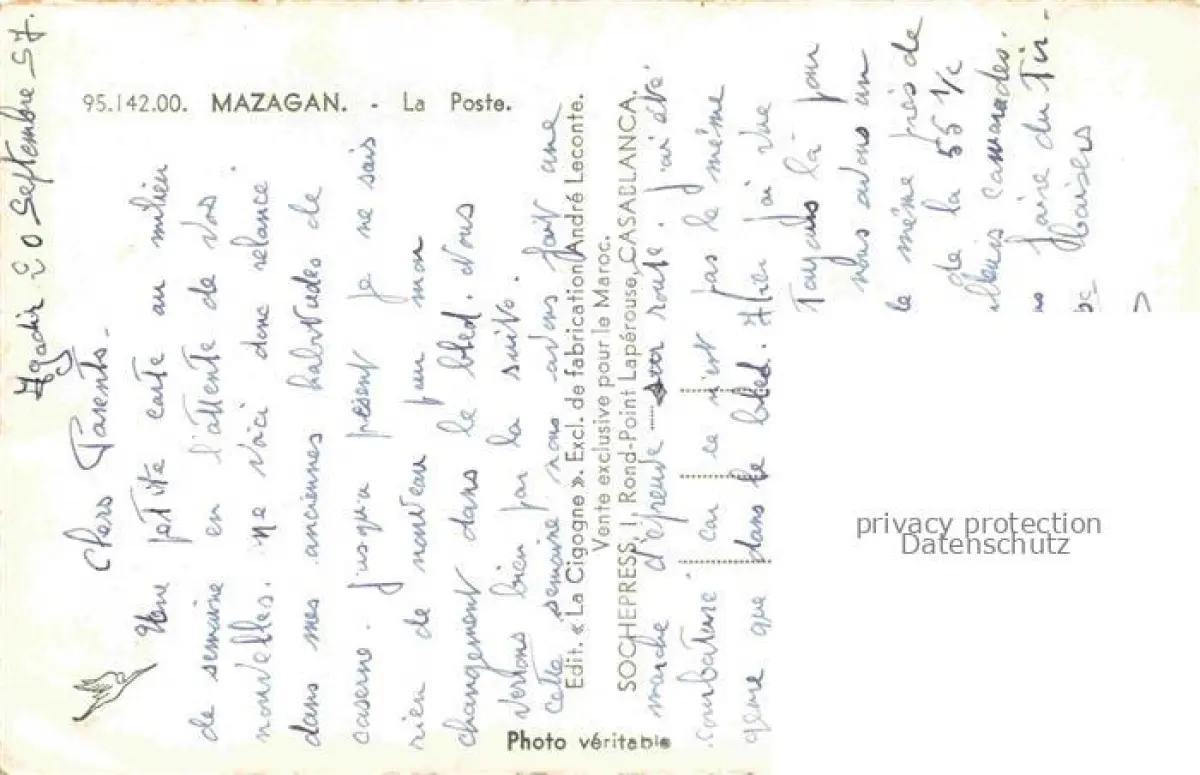 95.142.00. MAZAGAN. - La Poste.
Agadir 20 Septembre 57.
Chers Parents.
Une petite carte au milieu
de semaine en l'attente de vos
nouvelles. Me voici donc relancé
dans mes anciennes habitudes de
caserne. jusqu'a présent je ne sais
rien de nouveau pour mon
changement dans le bled. Nous
verrons bien par la suite.
Cette semaine nous avons fait une
marche d'épreuve sur route. j'ai été
courbaturé car ce n'est pas le même
genre que dans le bled. Hier j'ai vue
Toujours là pour
nous avons un
le même près de
de la 55 1/c
camarades.
faire du Tir-
baisers
Edit. « La Cigogne ». Excl. de fabrication André Leconte.
Vente exclusive pour le Maroc.
SOCHEPRESS, 1, Rond-Point Lapérouse, CASABLANCA.
Photo véritable
privacy protection
Datenschutz